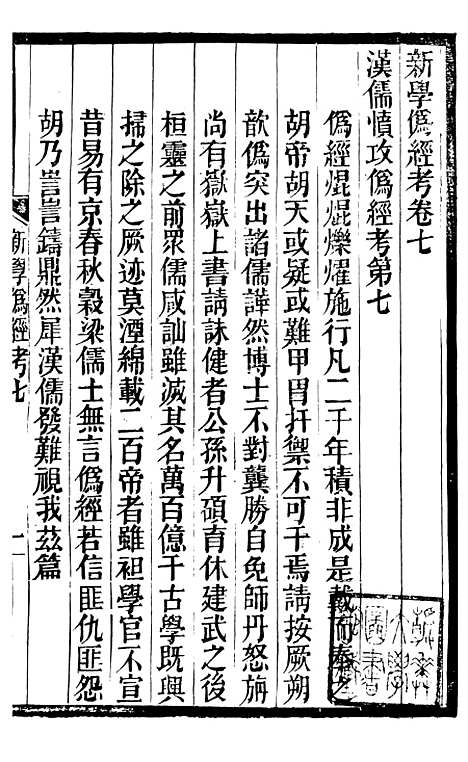 新學僞經考卷七
漢儒憤攻僞經考第七
僞經焜焜爍燿施行凡二千年積非成是戴而奉之
胡帝胡天或疑或難甲冑扞禦不可干焉請按厥朔
歆僞突出諸儒譁然博士不對龔勝自免師丹怒旃
尚有嶽嶽上書請誅健者公孫升碩育休建武之後
桓靈之前眾儒咸訕雖滅其名萬百億千古學既興
掃之除之厥迹莫湮綿載二百帝者雖袒學官不宣
昔易有京春秋穀梁儒士無言僞經若信匪仇匪怨
胡乃訔訔鑄鼎然犀漢儒發難視我茲篇
新學僞經考七
一